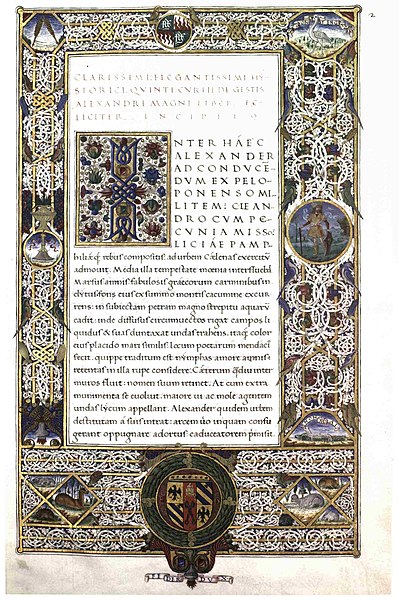 2
CLARISSIMI ELEGANTISSIMI HIS
TORICI QVINTI CVRTII DE GESTIS
ALEXANDRI MAGNI LIBER FE
LICITER INCIPIT
INTER HÁEC
ALEXANDER
AD CONDVCE
DVM EX PELO
PONENSO MI
LITEM: CLEAN
DRO CVM PE
CVNIA MISSO
LICIÁE PAMP
hiliáeq; rebus compositis: ad urbem Cælenas exercitũ
admouit. Media illa tempestate moenia interfluebat
Marsias amnis fabulosis graecorum carminibus in
clytus: fons eius ex summo montis cacumine excur
rens: in subiectam petram magno strepitu aquarũ
cadit: inde diffusus circumiectos rigat campos li
quidus & suas dumtaxat undas trahens. itaq; color
eius placido mari similis: locum poetarum mendacio
fecit. quippe traditum est nymphas amore amnis
retentas in illa rupe considere. Cæterum q̃diu intr
muros fluit: nomen suum retinet. At cum extra
munimenta se euoluit. maiore ui ac mole agentem
undas lycum appellant. Alexander quidem urbem
destitutam á suis intrat: arcem uero in quam confu
gerant oppugnare adortus caduceatorem p̃misit
FE DVX